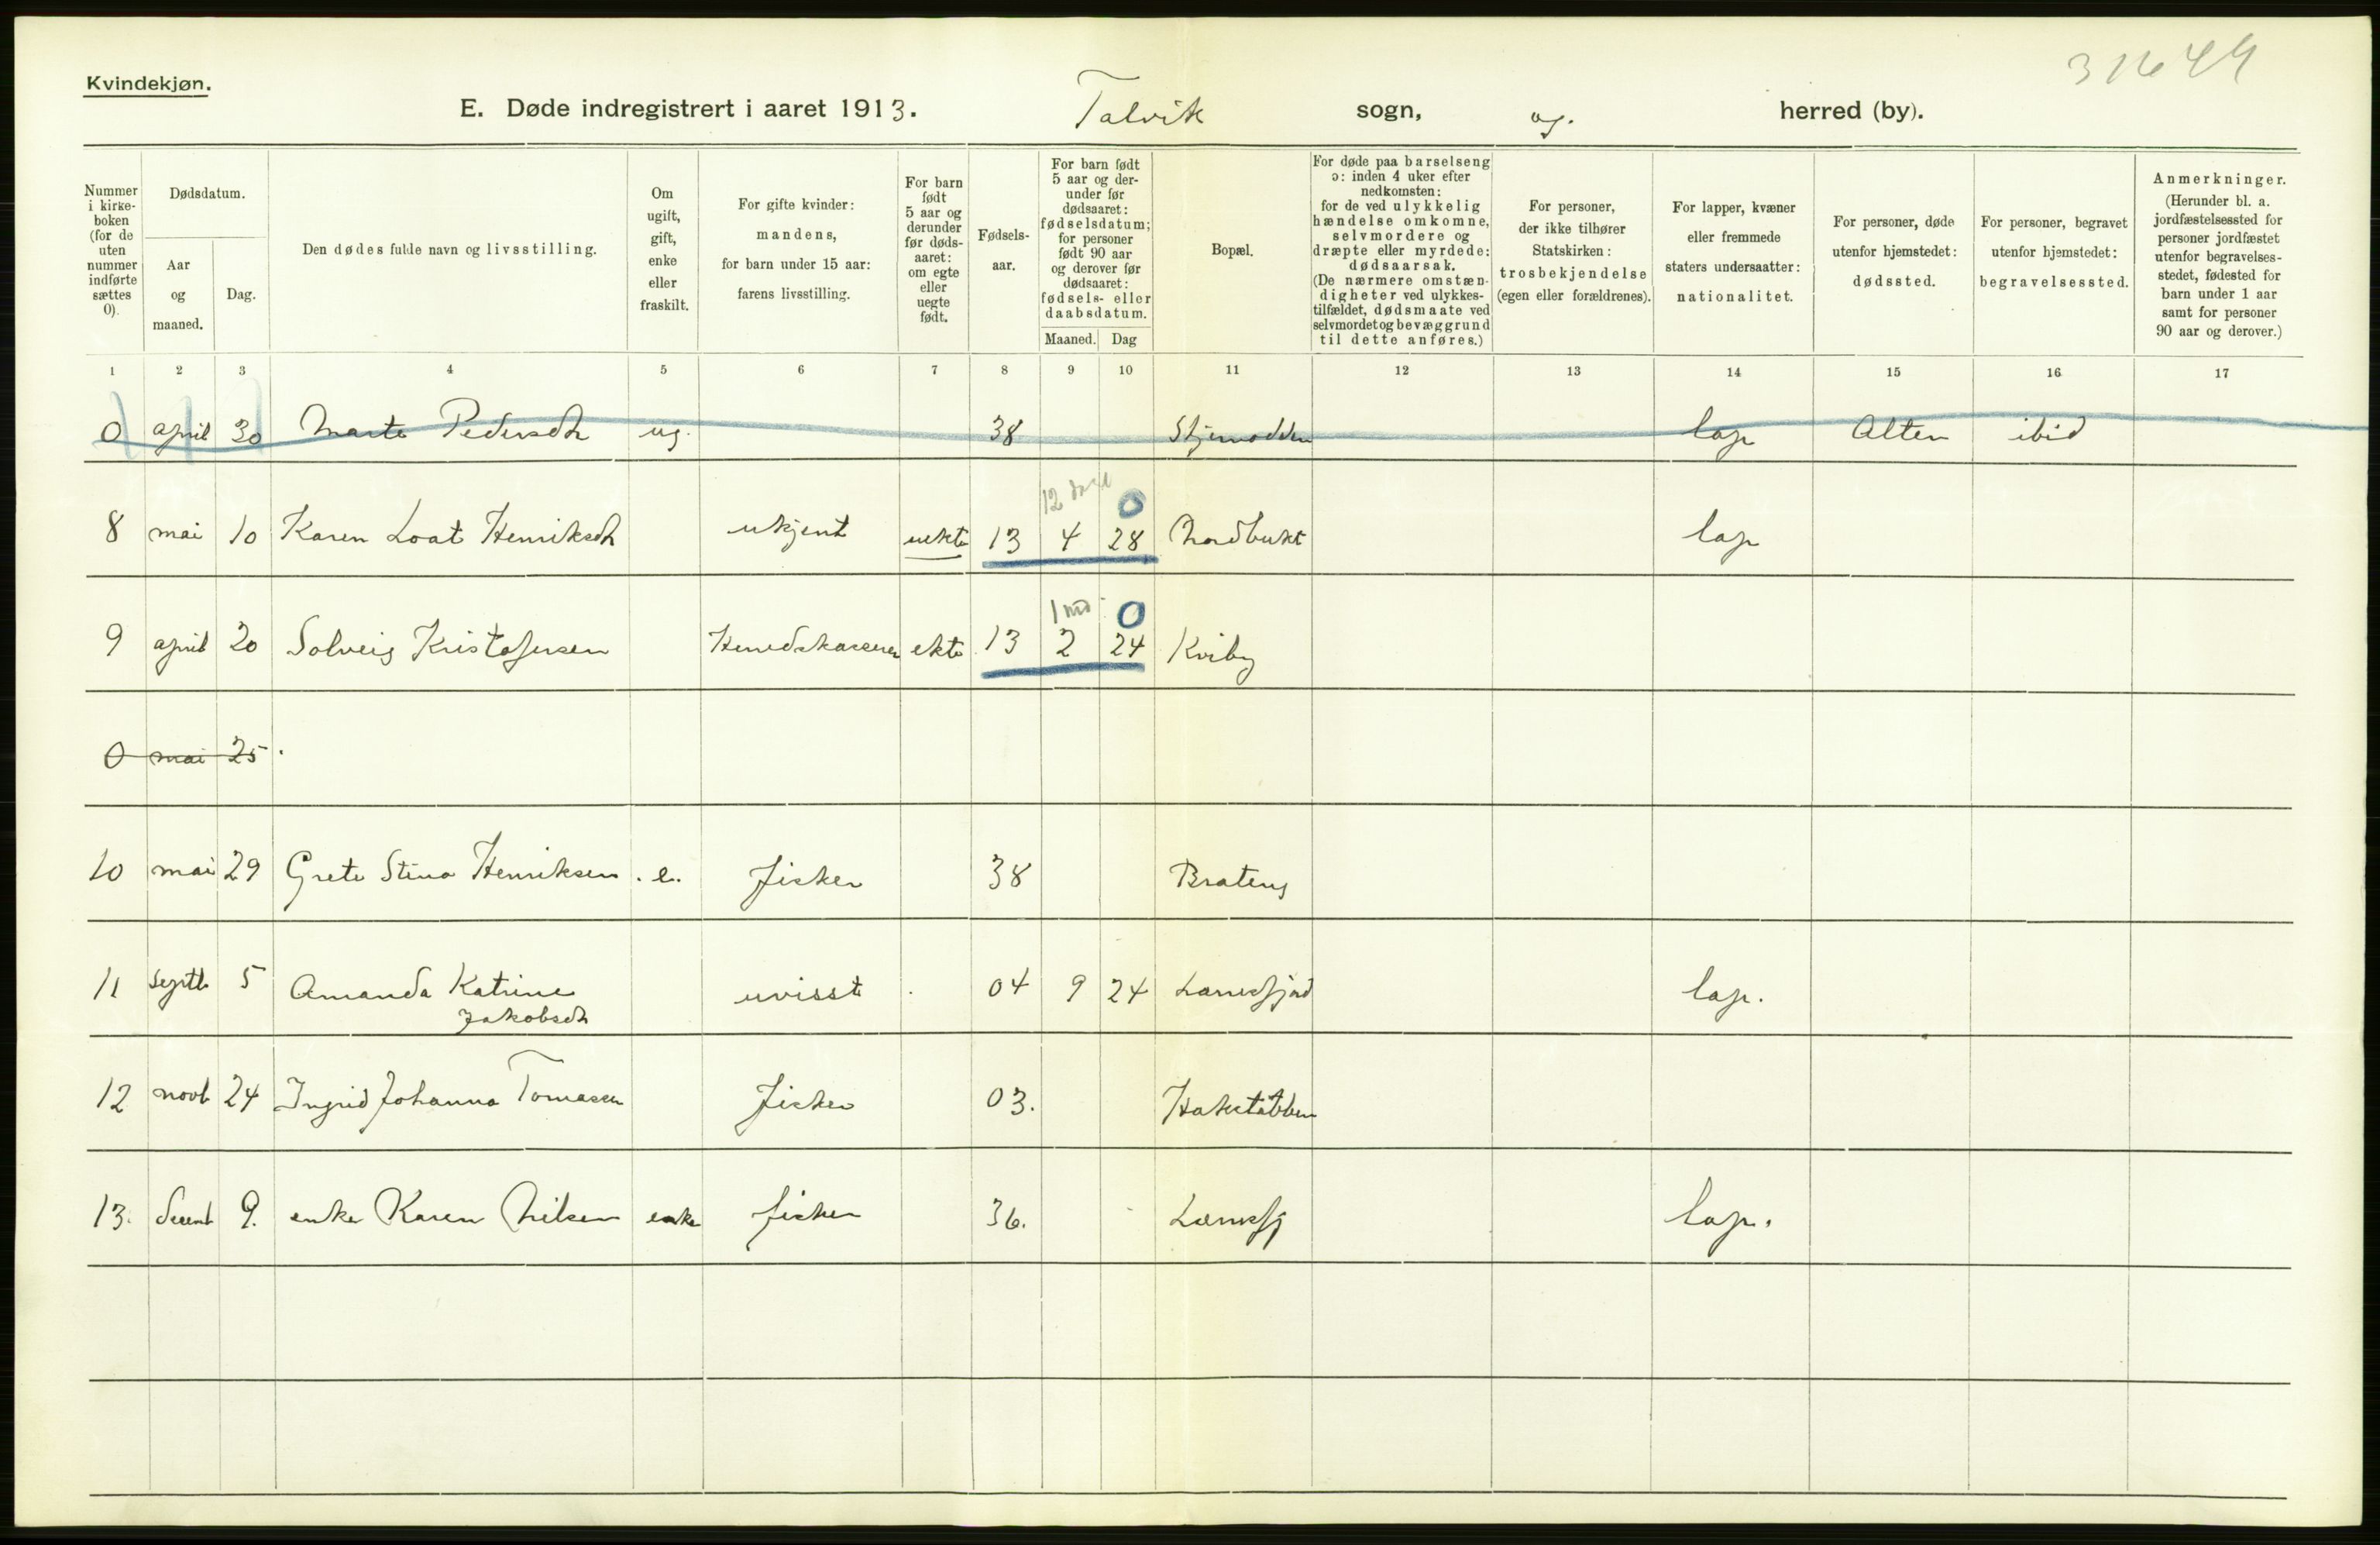 31644
Kvindekjøn.
E. Døde indregistrert i aaret 1913. Talvik sogn, og. herred (by).
Nummer i kirke- boken (for de uten nummer indførte sættes 0).
Dødsdatum.
Aar og maaned.
Dag.
Den dødes fulde navn og livsstilling.
Om ugift, gift, enke eller fraskilt.
For gifte kvinder: mandens, for barn under 15 aar: farens livsstilling.
For barn født 5 aar og derunder før døds- aaret: om egte eller uegte født.
Fødsels- aar.
For barn født 5 aar og der- under før dødsaaret: fødselsdatum; for personer født 90 aar og derover før dødsaaret: fødsels- eller daabsdatum.
Maaned. Dag
Bopæl.
For døde paa barselseng ɔ: inden 4 uker efter nedkomsten: for de ved ulykkelig hændelse omkomne, selvmordere og dræpte eller myrdede: dødsaarsak. (De nærmere omstæn- digheter ved ulykkes- tilfældet, dødsmaate ved selvmordet og bevæggrund til dette anføres.)
For personer, der ikke tilhører Statskirken: trosbekjendelse (egen eller forældrenes).
For lapper, kvæner eller fremmede staters undersaatter: nationalitet.
For personer, døde utenfor hjemstedet: dødssted.
For personer, begravet utenfor hjemstedet: begravelsessted.
Anmerkninger. (Herunder bl. a. jordfæstelsessted for personer jordfæstet utenfor begravelses- stedet, fødested for barn under 1 aar samt for personer 90 aar og derover.)
1 2 3 4 5 6 7 8 9 10 11 12 13 14 15 16 17
0 april 30 Marte Pedersdtr ug. 38 Stjernodden lap Alten ibid
12 dage 0
8 mai 10 Karen Loat Henriksdtr ukjent uekte 13 4 28 Nordbukt lap
1 md. 0
9 april 20 Solveig Kristofersen Herredskasserer ekte 13 2 24 Kviby
0 mai 25
10 mai 29 Grete Stina Henriksen . e. fisker 38 Brateng
11 septb 5 Amanda Katrine uvisst . 04 9 24 Lærresfjord lap.
Jakobsdtr
12 novb 24 Ingrid Johanna Tomassen fisker 03. Hakstabben
13. decemb 9. enke Karen Nilsen enke fisker 36. Lærresfj lap.